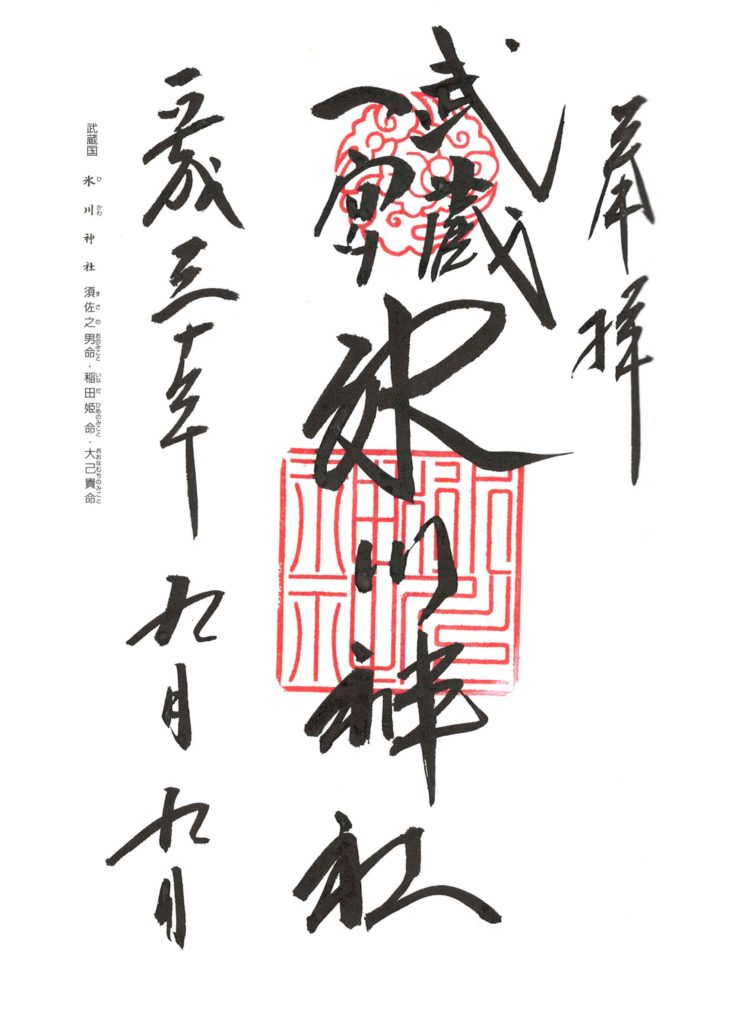 奉拝
武蔵
一宮
氷川神社
氷川神社
平成三十年九月九日
武蔵国 氷川神社 須佐之男命・稲田姫命・大己貴命
ひ かわ すさのおのみこと いなだひめのみこと おおなむちのみこと